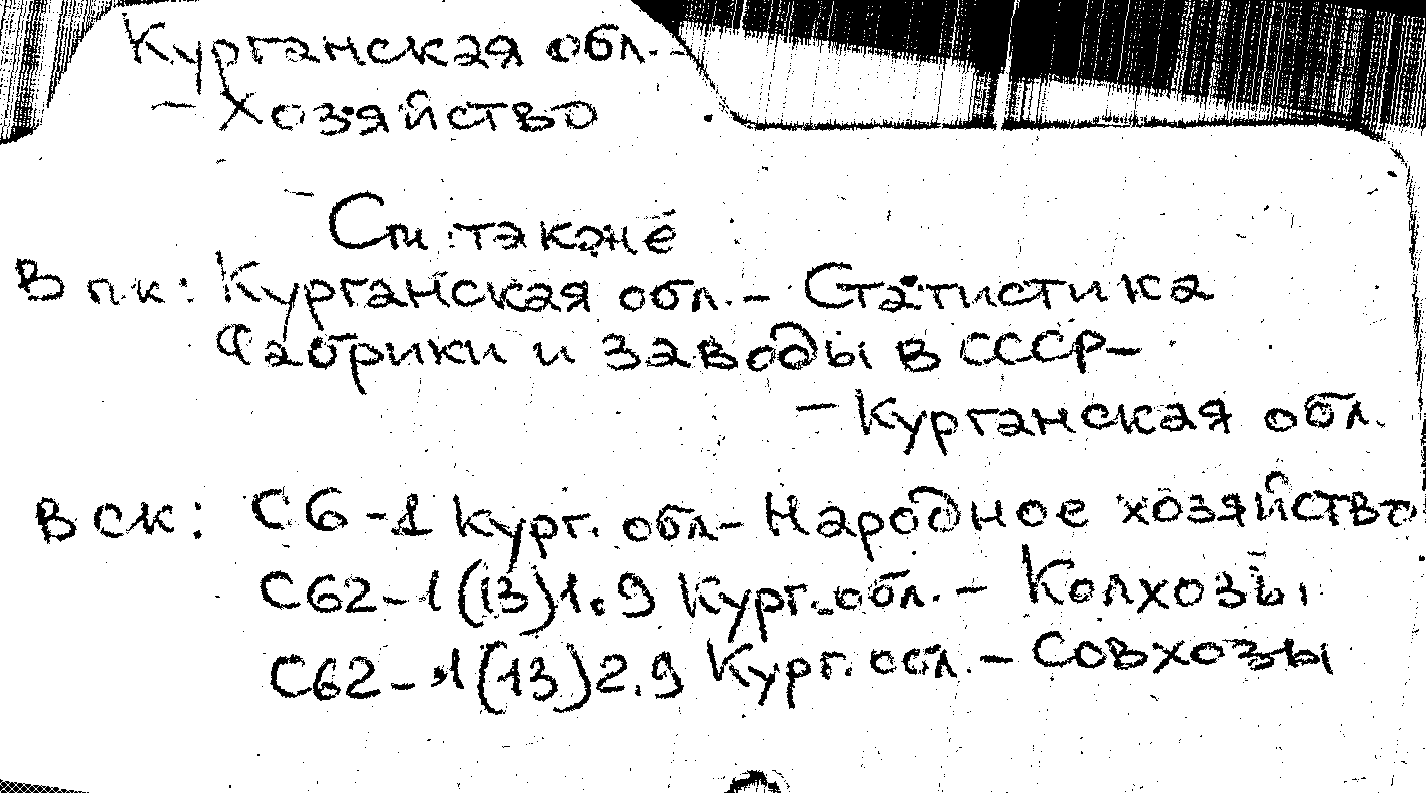 Курганская обл. -
- Хозяйство
См. также
В п.к: Курганская обл. - Статистика
Фабрики и заводы в СССР -
- Курганская обл.
В ск: С6-1 Кург. обл - Народное хозяйство
С62-1(13)1.9 Кург. обл. - Колхозы
С62-1(13)2.9 Кург. обл. - Совхозы